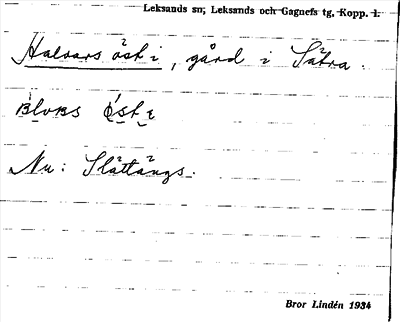 Leksands sn, Leksands och Gagnefs tg, Kopp. l.
Halvars öst i, gård i Sätra.
Nu: Slättängs.
Bror Lindén 1934